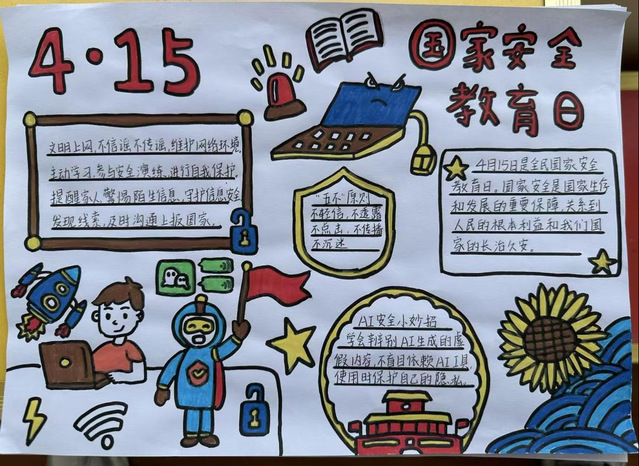 4·15
国家安全
教育日
文明上网,不信谣不传谣,维护网络环境.
主动学习,参与安全演练,进行自我保护.
提醒家人警惕陌生信息,守护信息安全
发现线索,及时沟通上报国家.
"五不"原则
不轻信,不透露
不点击,不传播
不沉迷
4月15日是全民国家安全
教育日。国家安全是国家生存
和发展的重要保障,关系到
人民的根本利益和我们国
家的长治久安。
AI安全小妙招
学会辨别AI生成的虚
假内容,不盲目依赖AI工具
使用时保护自己的隐私.
1
1